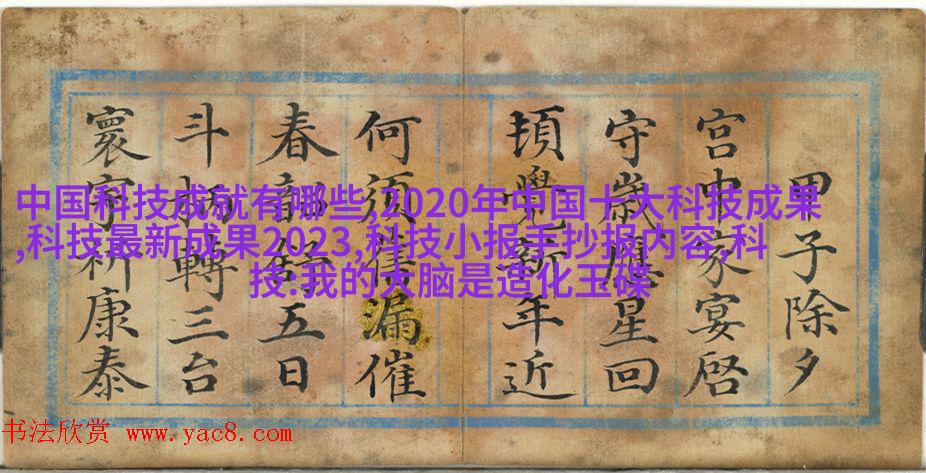 甲子除夕
宮中家宴啓
守歲星回
頓覺新年近
何須漏催
春五日
斗柄轉三台
寰宇祈康泰
中国科技成就有哪些,2020年中国十大科技成果
,科技最新成果2023,科技小报手抄报内容,科
技:我的大脑是造化玉碟
书法欣赏 www.yac8.com